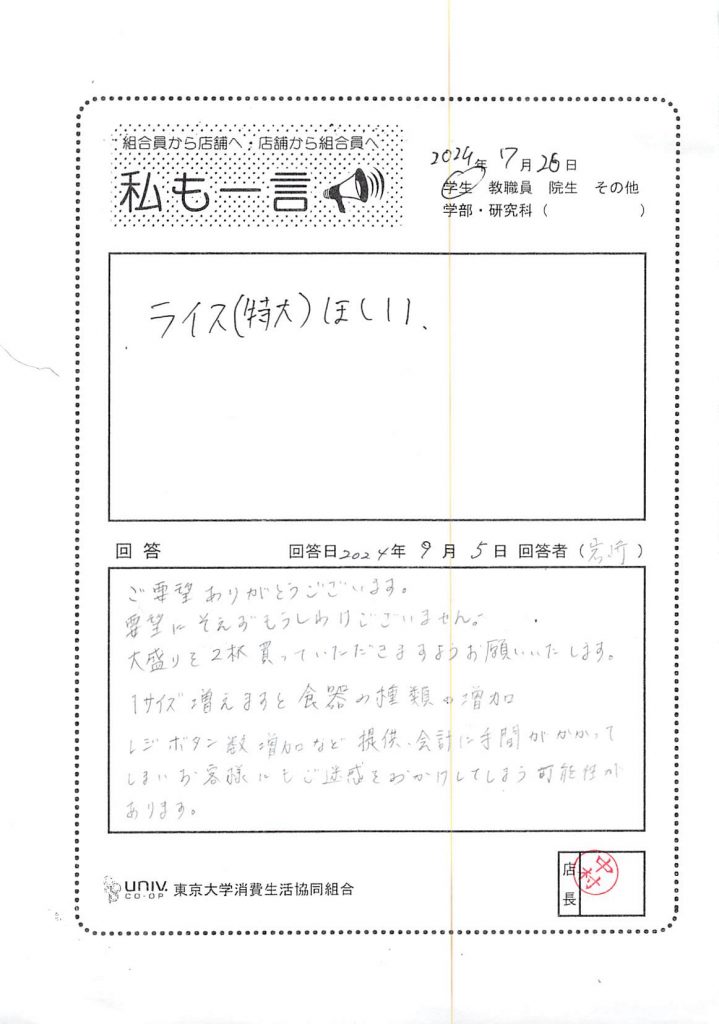 組合員から店舗へ・店舗から組合員へ
私も一言
2024年 7月 26日
学生 教職員 院生 その他
学部・研究科 ( )
ライス(特大)ほしい、
回答 回答日2024年 9月 5日 回答者 ( )
ご要望ありがとうございます。
要望にそえずもうしわけございません。
大盛りを2杯買っていただきますようお願いいたします。
1サイズ増えますと食器の種類の増加
レジボタン数増加など提供、会計に手間がかかって
しまいお客様にもご迷惑をおかけしてしまう可能性が
あります。
UNIV. CO-OP 東京大学消費生活協同組合
店長
中村